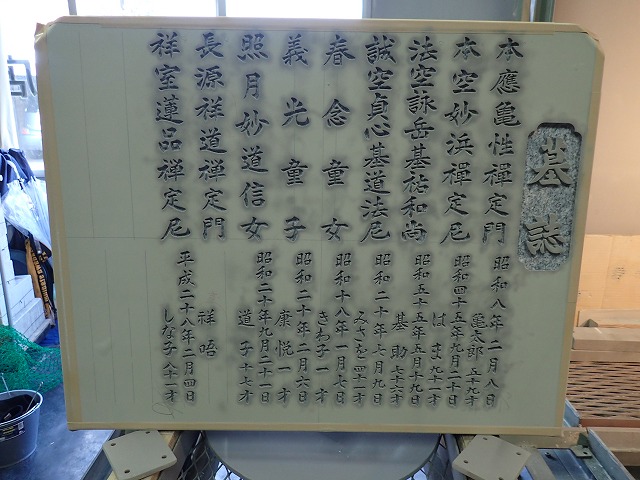 墓誌
本應亀性禅定門
昭和八年二月八日
亀太郎 五十九才
本空妙浜禅定尼
昭和四十五年九月二十日
はま 九十一才
法空詠岳基祐和尚
昭和五十五年五月十九日
基助 七十六才
誠空貞心基道法尼
昭和二十年七月九日
みさを 四十一才
春念童女
昭和十八年一月七日
きわ子 一才
義光童子
昭和二十年二月六日
康悦 一才
照月妙道信女
昭和二十年九月二十一日
道子 十七才
長源祥道禅定門
祥晤
祥室蓮品禅定尼
平成二十八年二月四日
しな子 八十一才